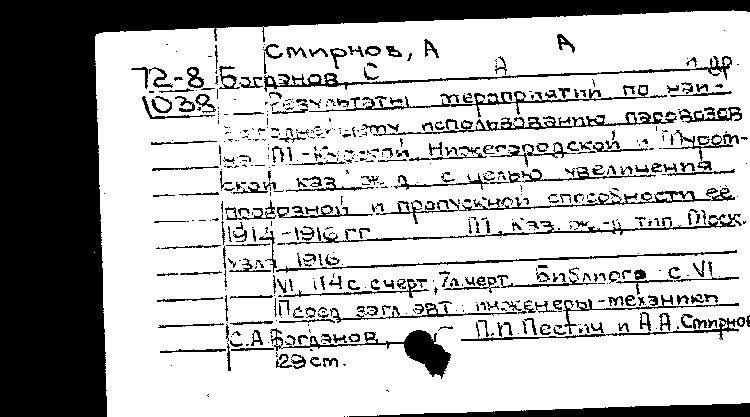 Смирнов, А А
72-8 Богданов, С А и др.
1038 Результаты мероприятий по наи-
выгоднейшему использованию паровозов
на М.-Курской, Нижегородской и Муром-
ской каз. ж. д. с целью увеличения
провозной и пропускной способности ее
1914-1916 гг. М., каз. ж.-д. тип. Моск.
узла, 1916
VI, 114 с. с черт., 7 л. черт. Библиогр. с. VI
Перед загл. авт.: инженеры-механики
С.А Богданов, П.П Пестич и А.А. Смирнов
29 см.